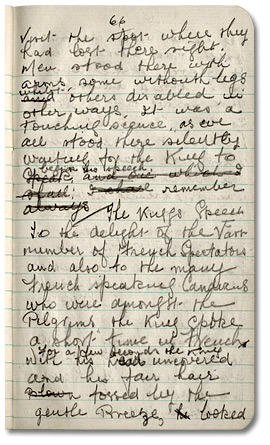 66
visit the spot where they
had lost there sight.
Men stood there with
arms, some withouth legs
whilst
and others disabled in
other ways. It was a
touching scence, as we
all stood there silently
waiting for the King to
begin his speech
speak and one which I
shall I shall remember
always The Kings Speech
To the delight of the Vast
number of French Spectators
and also to the many
French speaking Canadians
who were amongst the
Pilgrims the King spoke
a short time in French
For a few seconds the King
with his head uncovered
and his fair hair
blown tossed by the
gentle Breeze, he looked